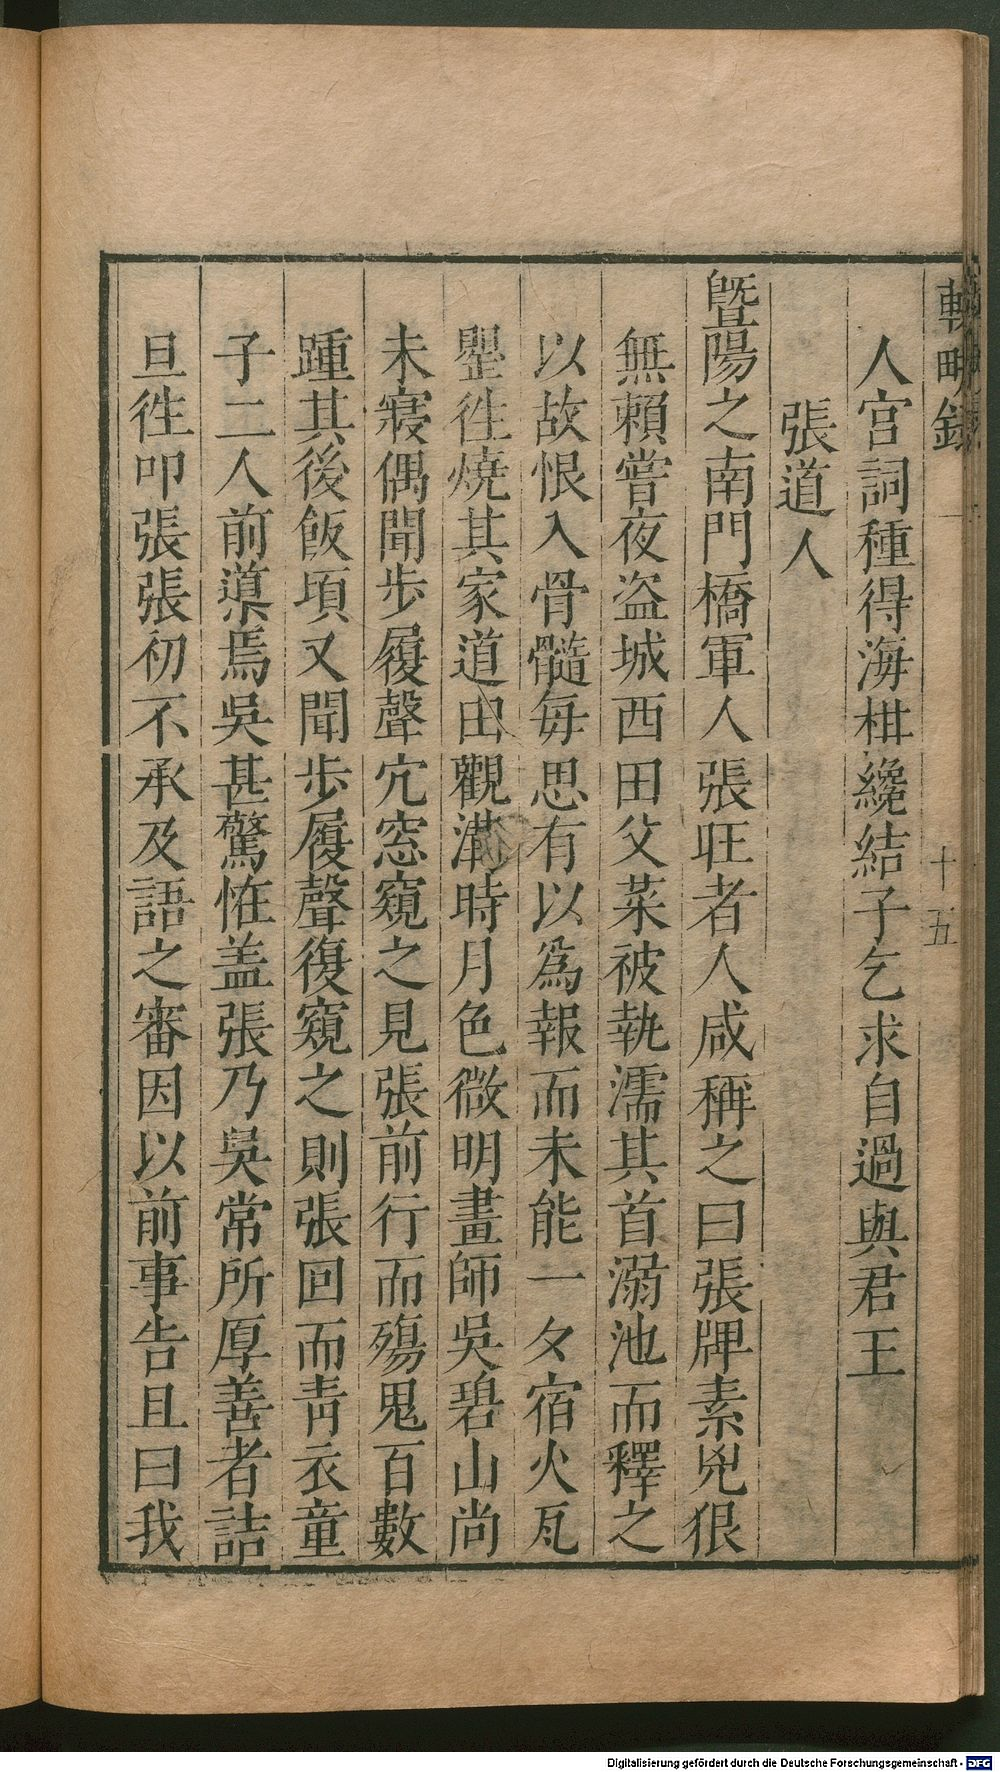 輟畊錄
十五
人宮詞種得海柑纔結子乞求自過與君王
張道人
暨陽之南門橋軍人張旺者人咸稱之曰張牌素兇狠
無賴嘗夜盜城西田父菜被執濡其首溺池而釋之
以故恨入骨髓每思有以爲報而未能一夕宿火瓦
罌徃燒其家道由觀溝時月色微明畫師吳碧山尚
未寢偶聞步履聲穴窓窺之見張前行而殤鬼百數
踵其後飯頃又聞步履聲復窺之則張回而靑衣童
子二人前導焉吳甚驚恠盖張乃吳常所厚善者詰
旦徃叩張張初不承及語之審因以前事告且曰我
Digitalisierung gefördert durch die Deutsche Forschungsgemeinschaft - DFG